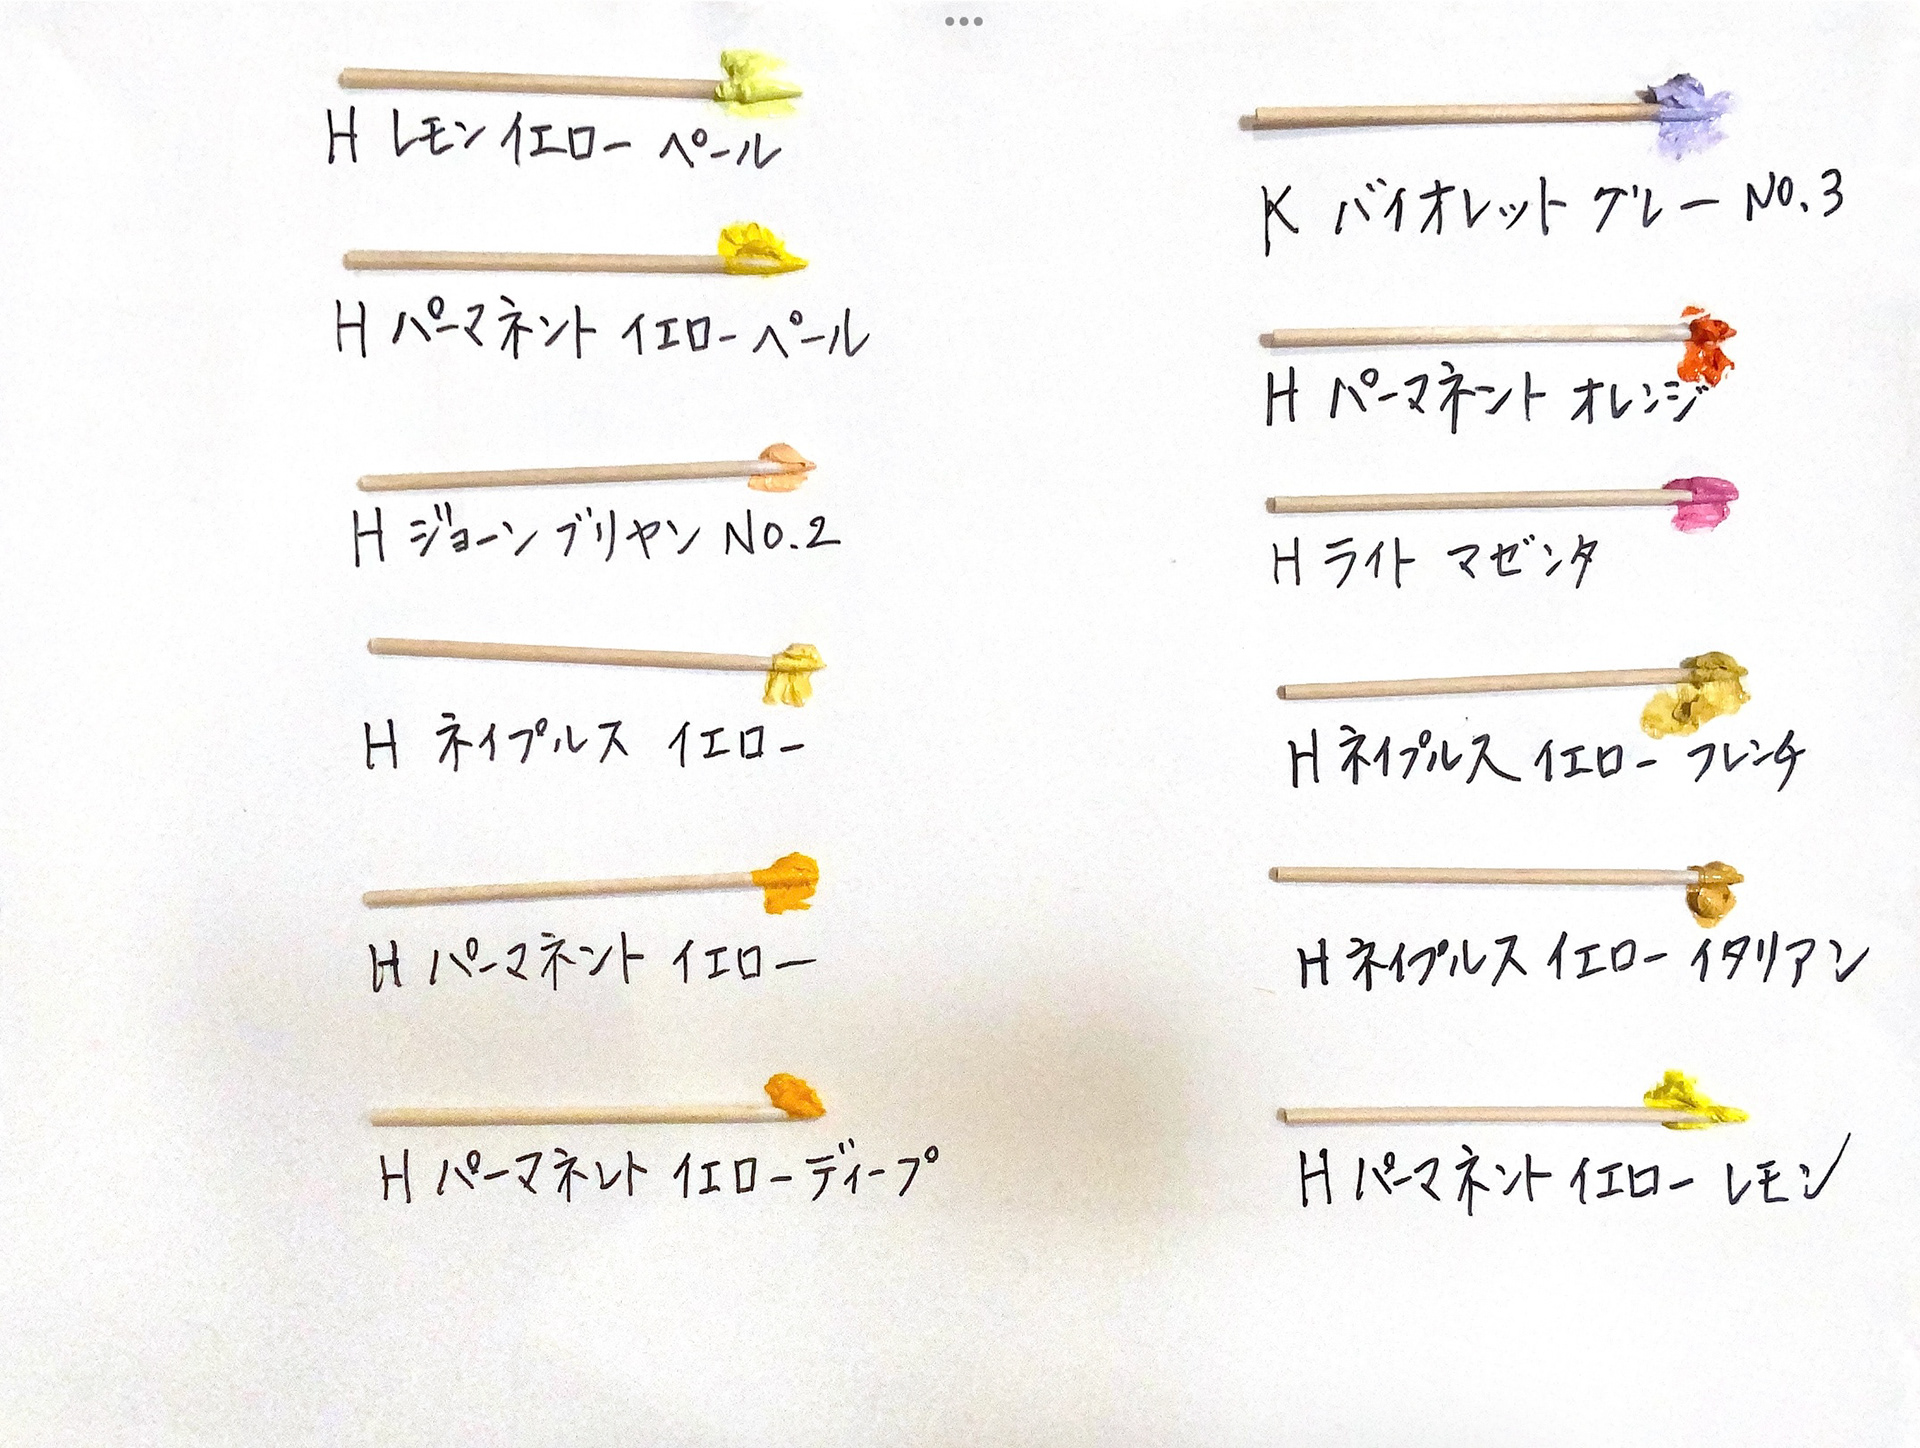 H レモンイエロー ペール
H パーマネント イエローペール
H ジョーン ブリヤン NO.2
H ネイプルス イエロー
H パーマネント イエロー
H パーマネント イエローディープ
K バイオレット グレー NO.3
H パーマネント オレンジ
H ライト マゼンタ
H ネイプルス イエロー フレンチ
H ネイプルス イエロー イタリアン
H パーマネント イエロー レモン